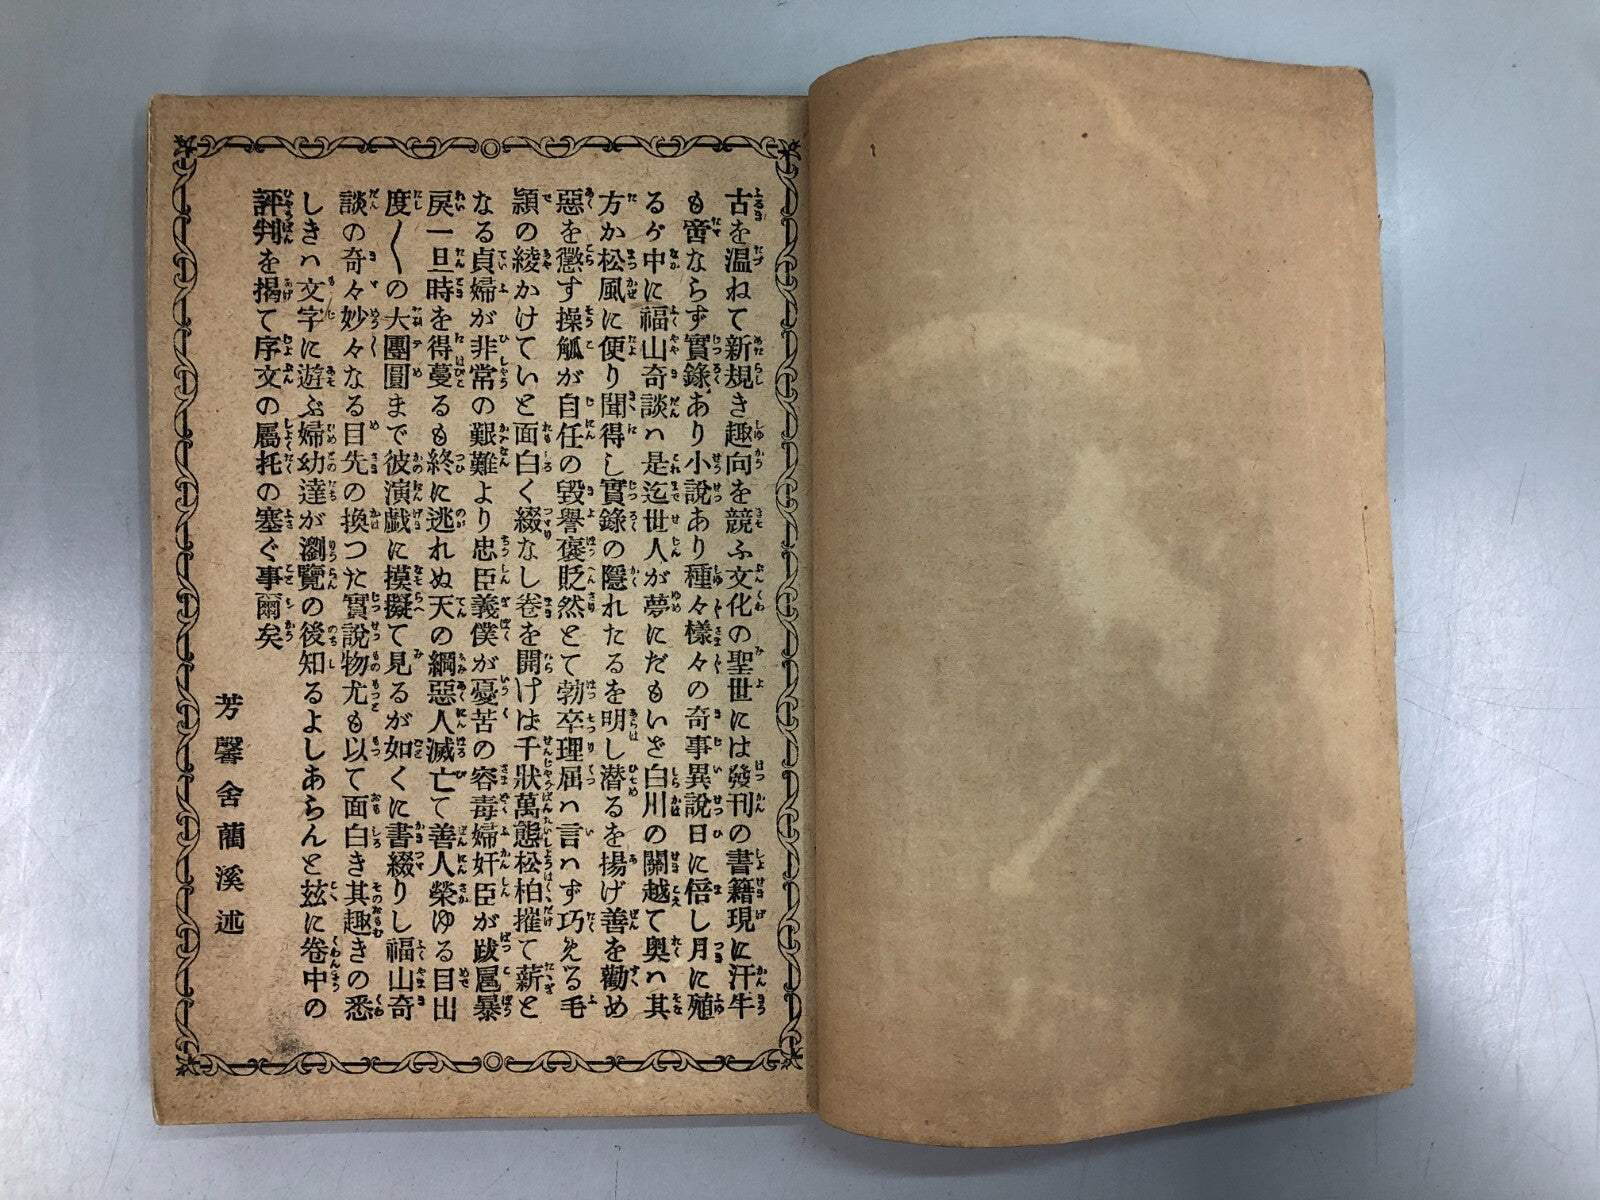 古を温ねて新規き趣向を競ふ文化の聖世には發刊の書籍現に汗牛
も啻ならず實錄あり小說あり種々樣々の奇事異說日に倍し月に殖
るが中に福山奇談ハ是迄世人が夢にだもいざ白川の關越て奥ハ其
方か松風に便り聞得し實錄の隱れたるを明し潜るを揚げ善を勸め
惡を懲す操觚が自任の毀譽褒貶然とて勃卒理屈ハ言ハず巧みえる毛
頴の綾かけていと面白く綴なし卷を開けば千狀萬態松柏摧て薪と
なる貞婦が非常の艱難より忠臣義僕が憂苦の容毒婦奸臣が跋扈暴
戾一旦時を得蔓るも終に逃れぬ天の網惡人滅亡て善人榮ゆる目出
度〱の大團圓まで彼演戯に摸擬て見るが如くに書綴りし福山奇
談の奇々妙々なる目先の換つた實說物尤も以て面白き其趣きの悉
しきハ文字に遊ぶ婦幼達が瀏覽の後知るよしあらんと玆に卷中の
評判を揭て序文の屬托の塞ぐ事爾矣
芳馨舍蘭溪述